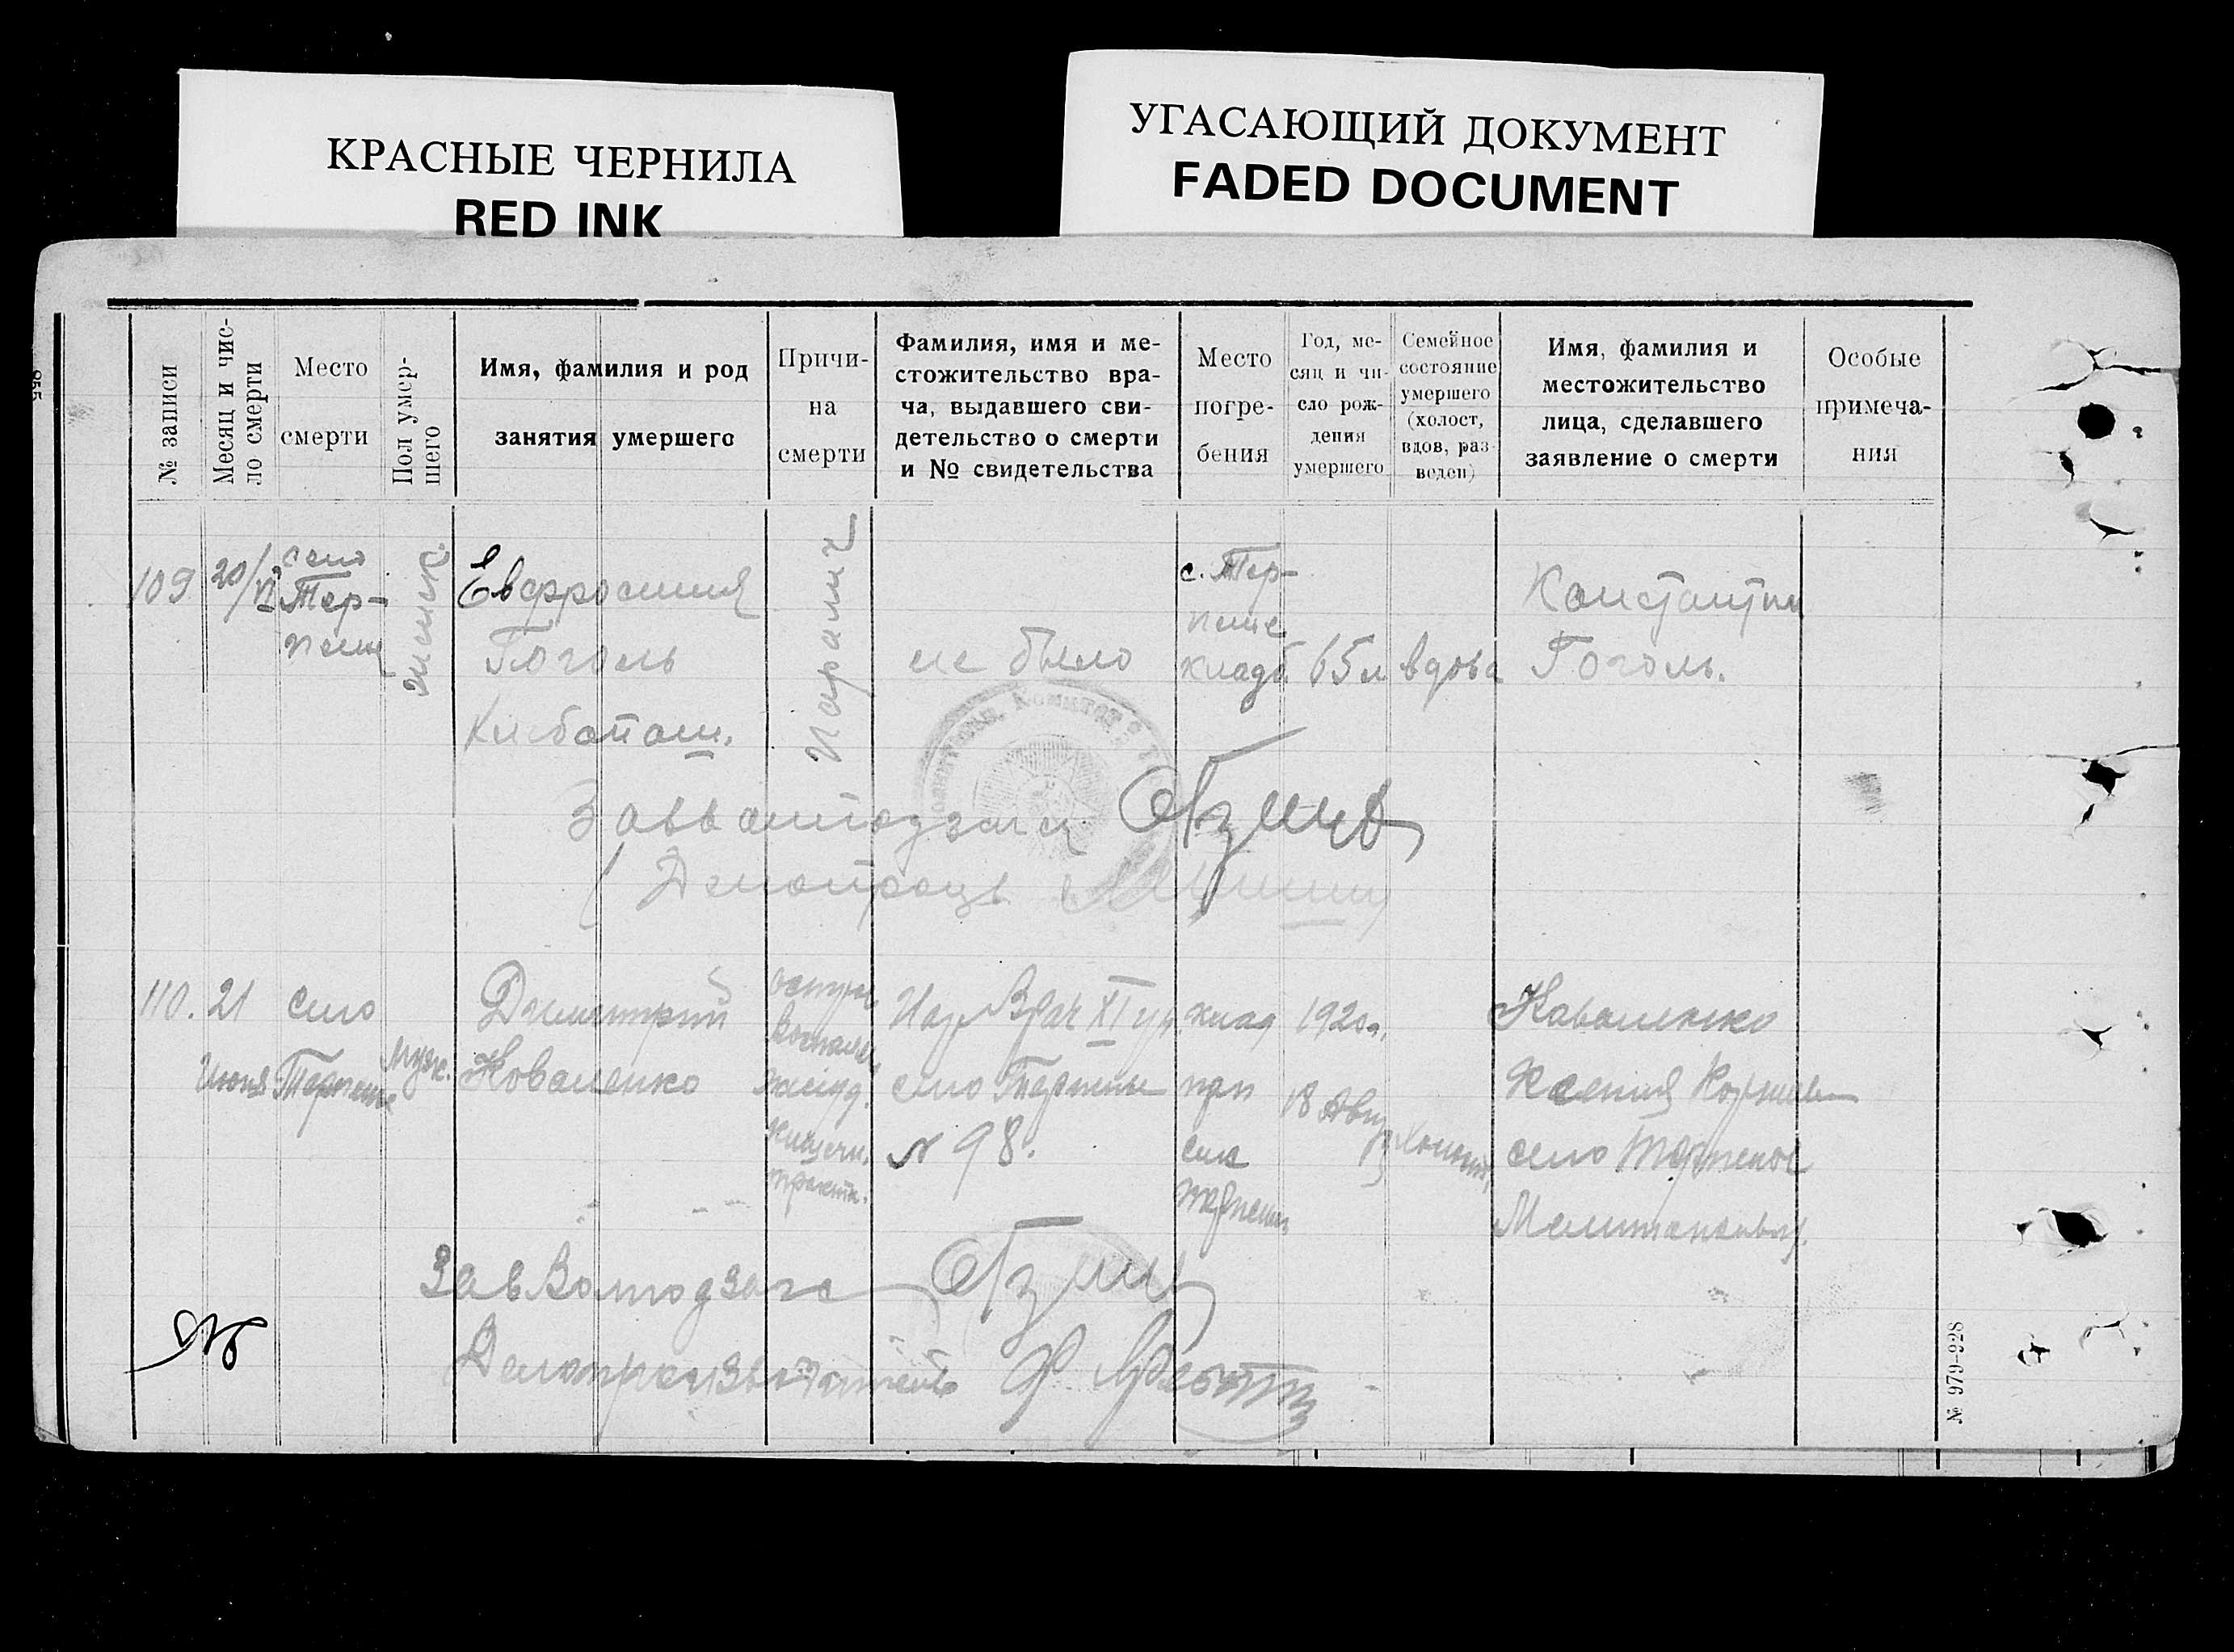 КРАСНЫЕ ЧЕРНИЛА
RED INK
УГАСАЮЩИЙ ДОКУМЕНТ
FADED DOCUMENT
№ записи
Месяц и чис-
ло смерти
Место
смерти
Пол умер-
шего
Имя, фамилия и род
занятия умершего
Причи-
на
смерти
Фамилия, имя и ме-
стожительство вра-
ча, выдавшего сви-
детельство о смерти
и № свидетельства
Место
погре-
бения
Год, ме-
сяц и чи-
сло рож-
дения
умершего
Семейное
состояние
умершего
(холост,
вдов, раз-
веден)
Имя, фамилия и
местожительство
лица, сделавшего
заявление о смерти
Особые
примеча-
ния
109
20/VI
село
Тер-
пение
женск.
Евфросиния
Гоголь
Паралич
не было
с. Тер-
пение
кладб.
65 л
вдова
Константин
Гоголь.
110.
21
Июня
село
Терпение
муж.
Димитрий
Коваленко
острое
воспален.
желуд.
кишечн.
тракта.
Нар Врач XI уч
село Терпение
№ 98.
клад
при
селе
Терпение
1920 г.
18 Авг
Коваленко
Ксения
село Терпение
Завволподзага
Делопроизводитель
№ 979-228